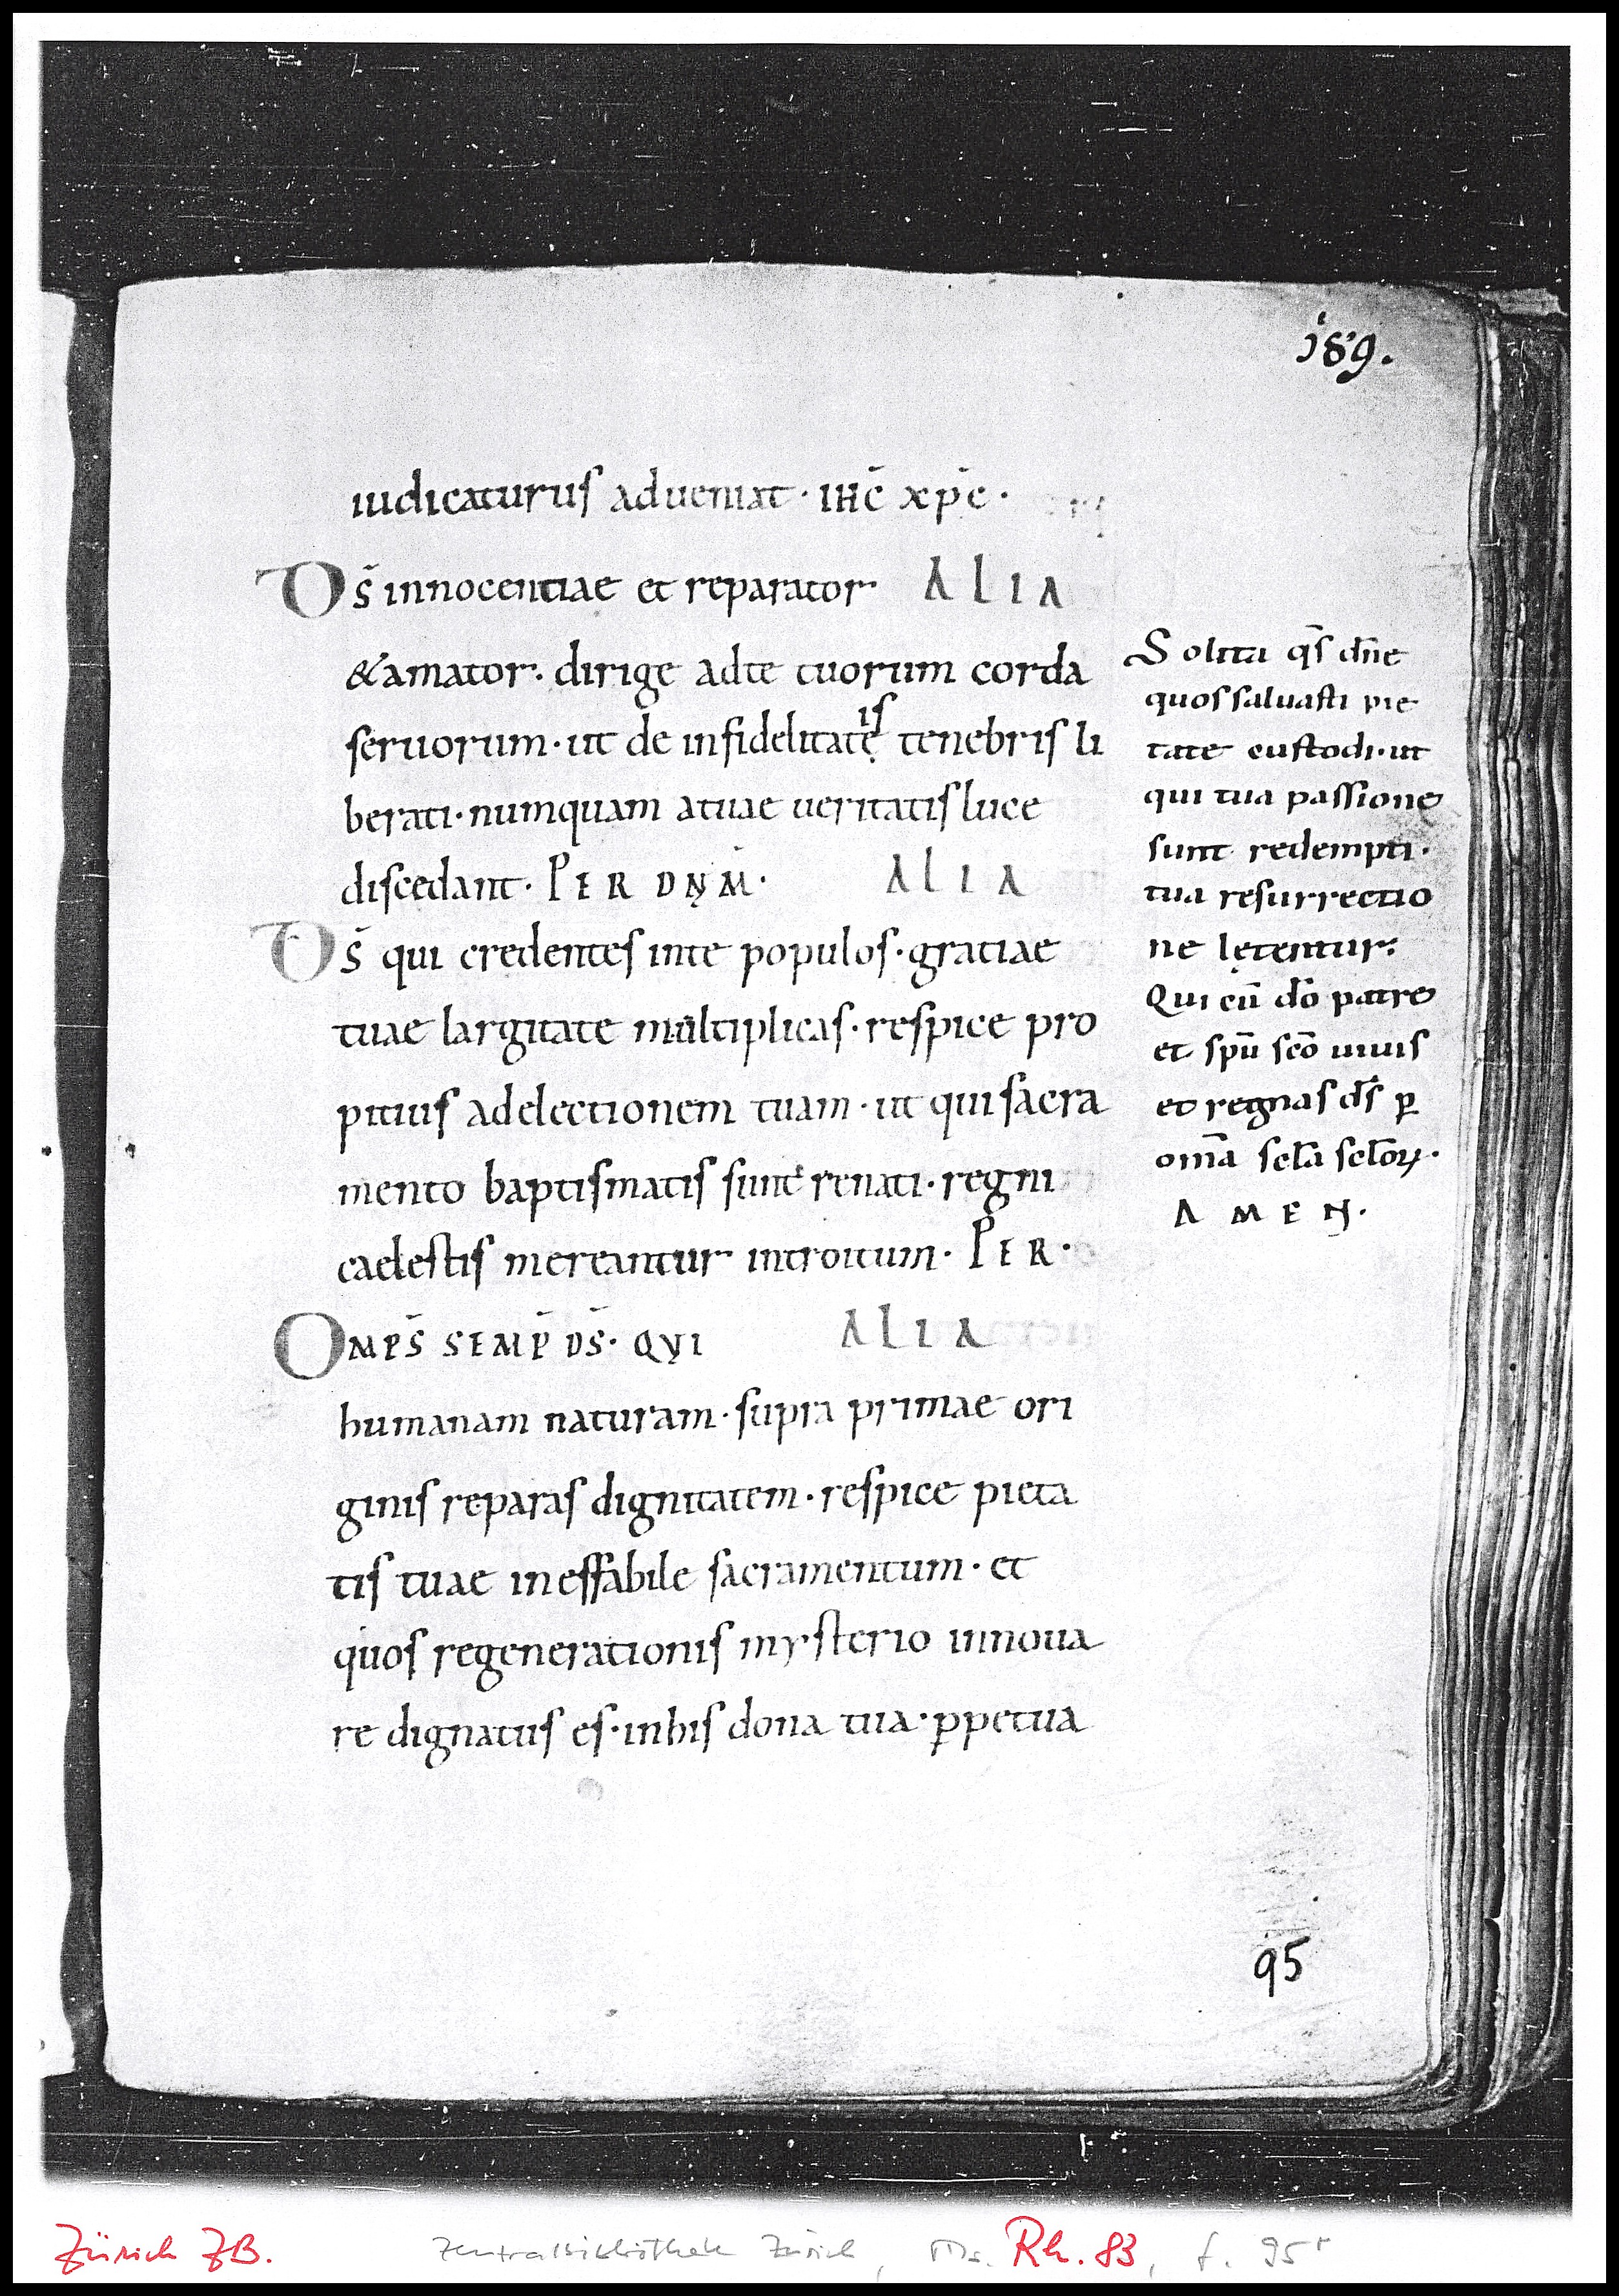 189.
iudicaturus adueniat· ihc̄ xp̄e·
Ds̄ innocentiae et reparator ALIA
&amator· dirige adte tuorum corda
seruorum· ut de infidelitatẹis tenebris li
berati· numquam atuae ueritatis luce
discedant· PER DNM̄· ALIA
Ds̄ qui credentes inte populos· gratiae
tuae largitate multiplicas· respice pro
pitius adelectionem tuam· ut qui sacra
mento baptismatis sunt renati· regni
caelestis mereantur introitum· PER·
OMPS̄ SEMP̄ DS̄· QUI ALIA
humanam naturam· supra primae ori
ginis reparas dignitatem· respice pieta
tis tuae ineffabile sacramentum· et
quos regenerationis mysterio innoua
re dignatus es· inhis dona tua· ꝑpetua
Solita qs̄ dn̄e
quos saluasti pie
tate custodi· ut
qui tua passione
sunt redempti·
tua resurrectio
ne lętentur·
Qui cū dō patre
et spū scō uiuis
et regnas ds̄ ꝑ
om̄a scl̄a scl̄oꝝ·
AMEN·
95
Zürich ZB. Zentralbibliothek Zürich, Ms. Rh. 83, f. 95r